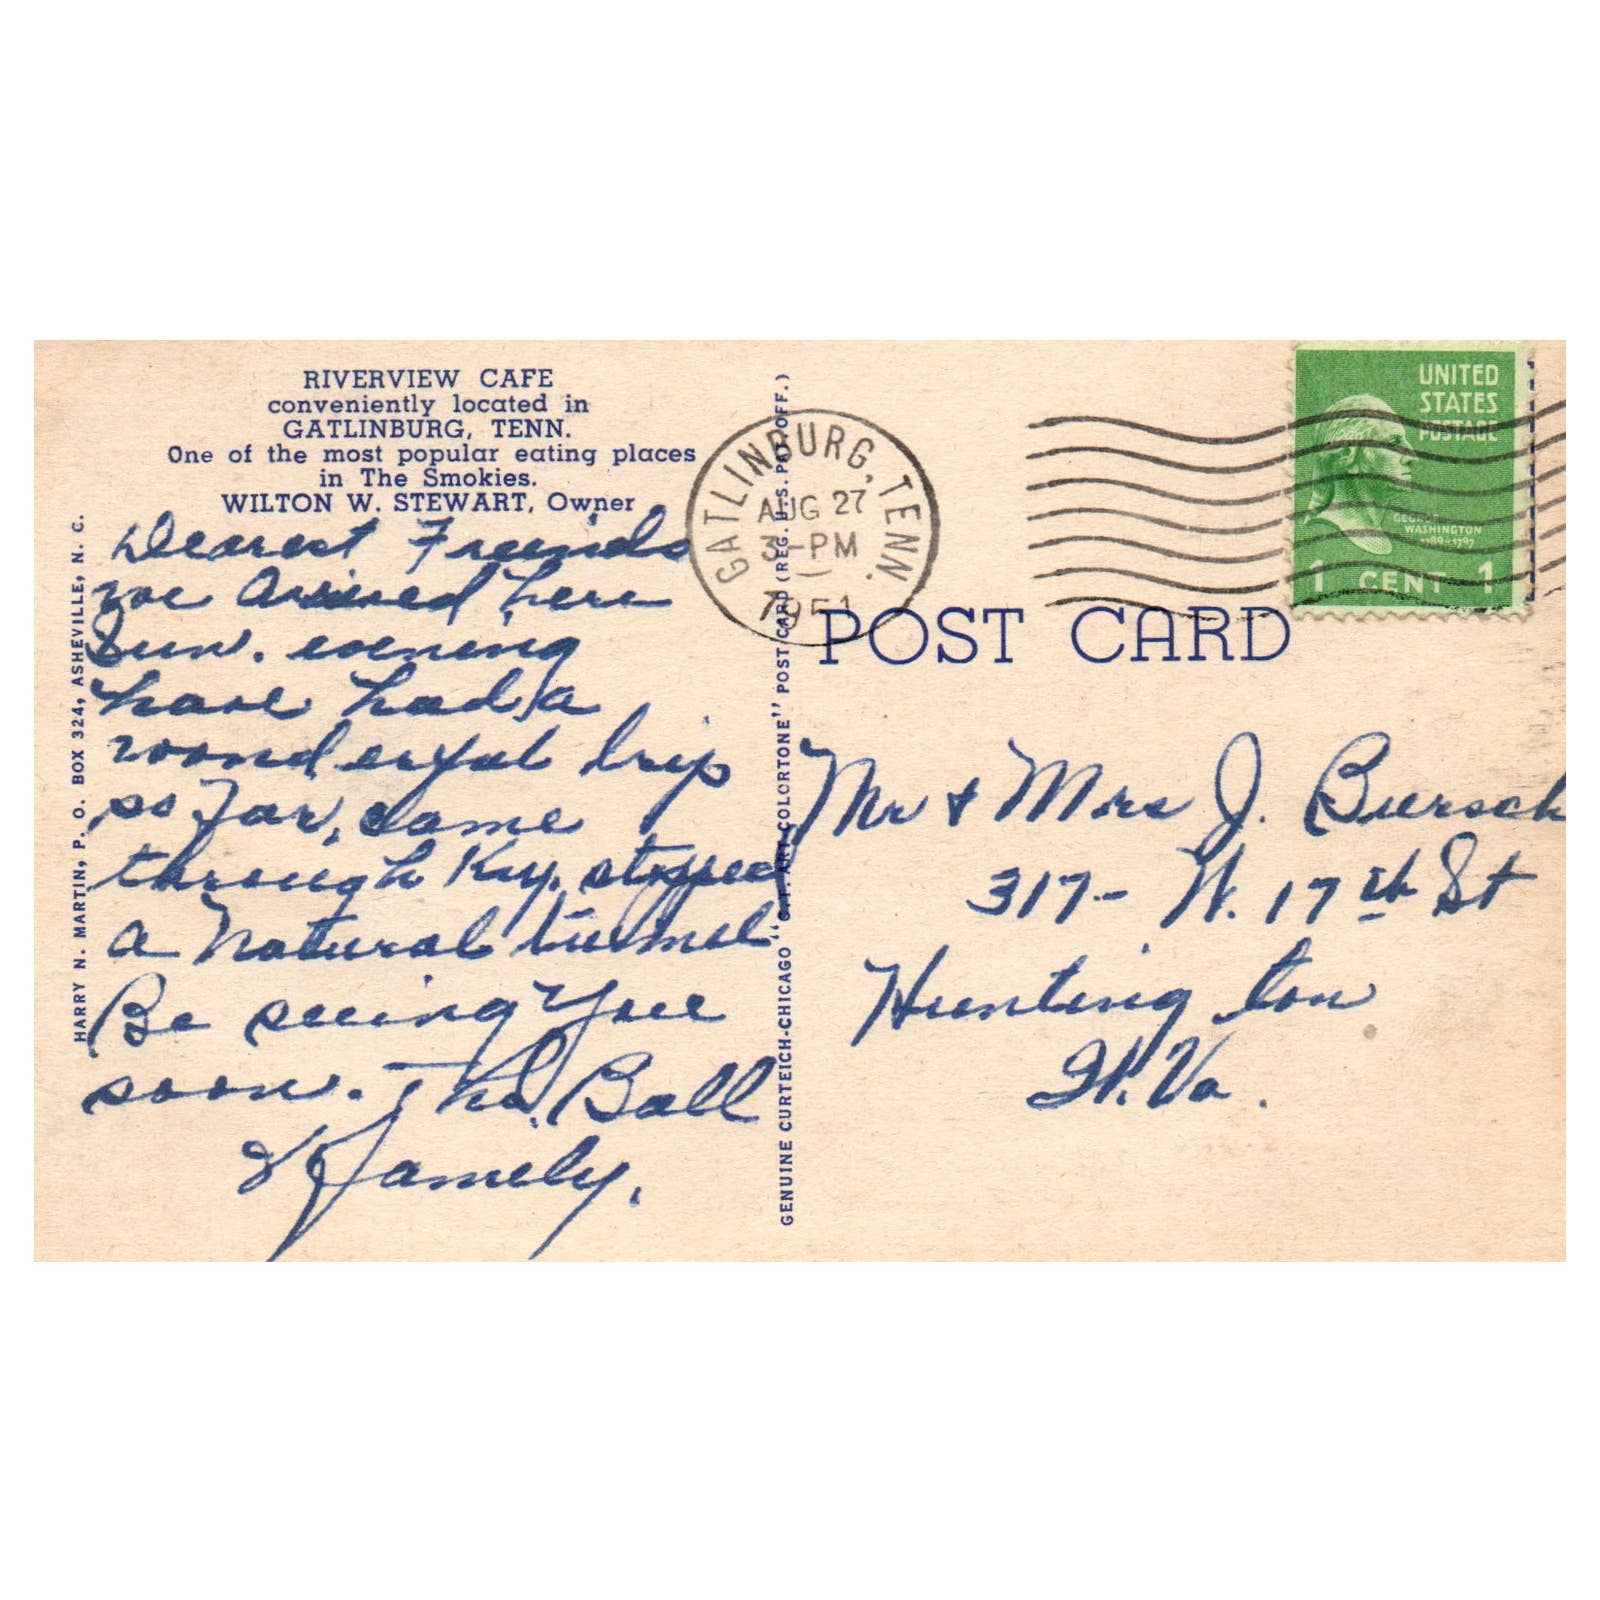 RIVERVIEW CAFE
conveniently located in
GATLINBURG, TENN.
One of the most popular eating places
in The Smokies.
WILTON W. STEWART, Owner
Dearest Friends
we arrived here
Sun. evening
have had a
wonderful trip
so far, came
through Ky. stopped
a Natural tunnel
Be seeing you
soon. Ball
& Family.
HARRY N. MARTIN, P. O. BOX 324, ASHEVILLE, N. C.
GENUINE CURTEICH-CHICAGO "C.T. ART-COLORTONE" POST CARD (REG. U.S. PAT. OFF.)
GATLINBURG, TENN.
AUG 27
3-PM
1951
UNITED
STATES
POSTAGE
GEORGE
WASHINGTON
1789-1797
1 CENT 1
POST CARD
Mr & Mrs J. Buersch
317- W. 17th St
Huntington
W. Va.